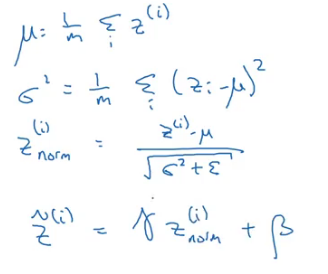 μ = 1/m Σ_i z^(i)
σ² = 1/m Σ_i (z_i - μ)²
z_norm^(i) = (z^(i) - μ) / √(σ² + ε)
z̃^(i) = γ z_norm^(i) + β